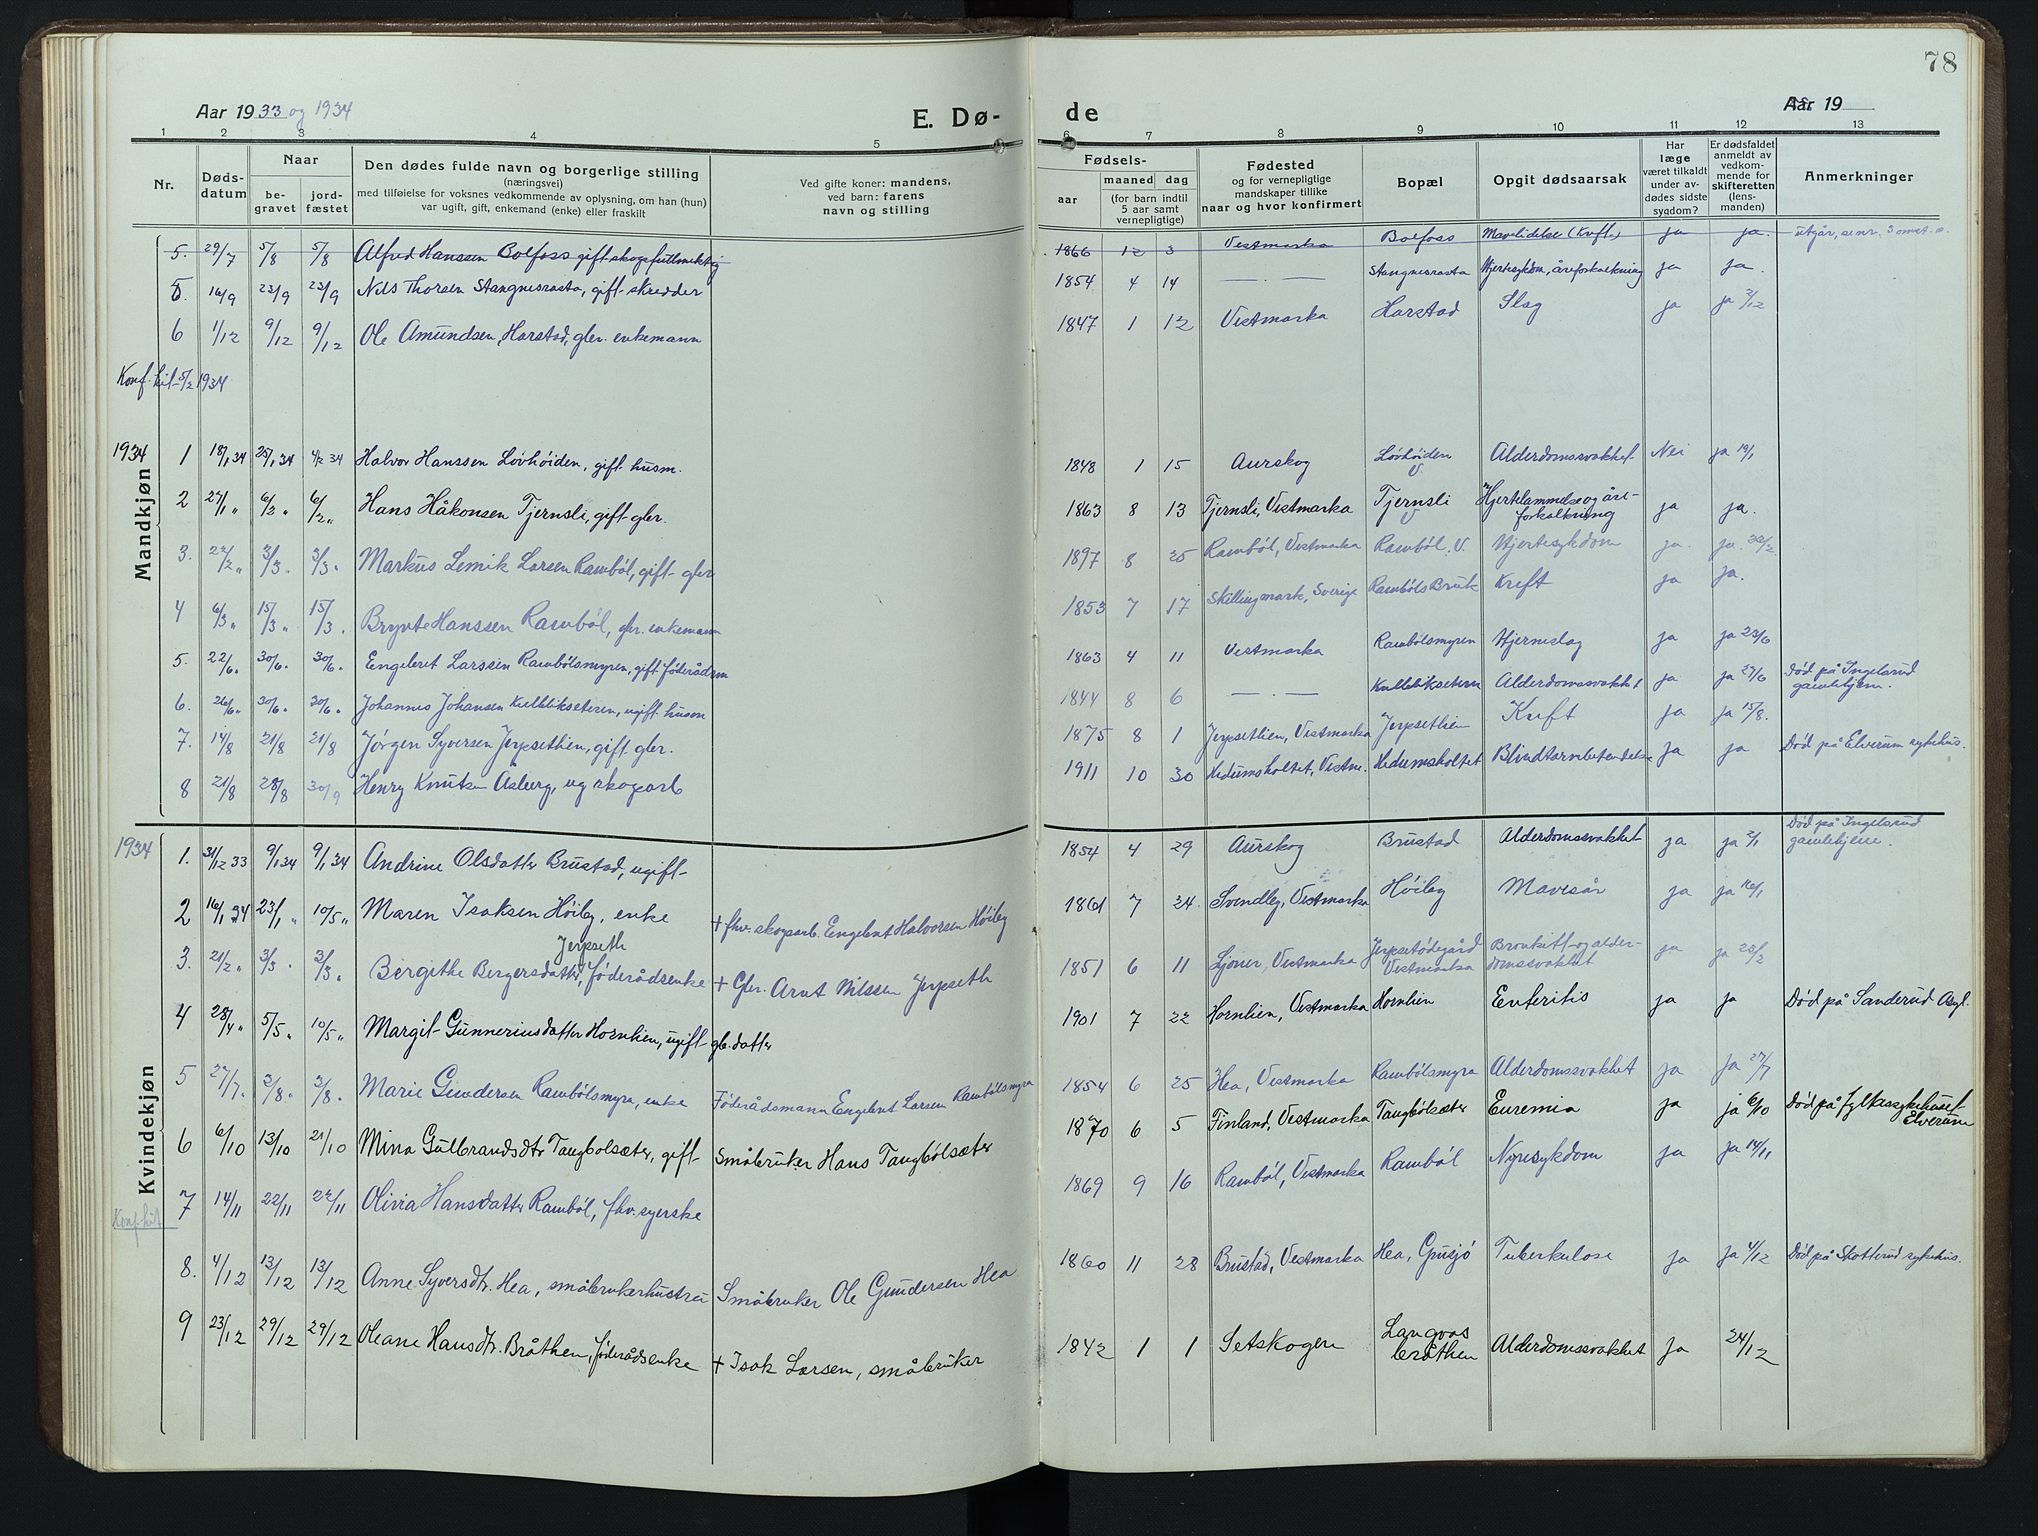 78
Aar 1933 og 1934
E. Dø-
de
Aar 19
1 2 3 4 5
6 7 8 9 10 11 12 13
Nr.
Døds-
datum
Naar
be-
gravet
jord-
fæstet
Den dødes fulde navn og borgerlige stilling
(næringsvei)
med tilføielse for voksnes vedkommende av oplysning, om han (hun)
var ugift, gift, enkemand (enke) eller fraskilt
Ved gifte koner: mandens,
ved barn: farens
navn og stilling
Fødsels-
aar
maaned dag
(for barn indtil
5 aar samt
vernepligtige)
Fødested
og for vernepligtige
mandskaper tillike
naar og hvor konfirmert
Bopæl
Opgit dødsaarsak
Har
læge
været tilkaldt
under av-
dødes sidste
sygdom?
Er dødsfaldet
anmeldt av
vedkom-
mende for
skifteretten
(lens-
manden)
Anmerkninger
5. 29/7 5/8 5/8 Alfred Hanssen Bolfoss gift skogsfullmektig 1866 12 3 Vestmarka Bolfoss Mavelidelse (Kreft) ja ja.
5. 16/9 23/9 23/9 Nils Thorsen Stangnesrasta, gift skredder 1854 4 14 — · — Stangnesrasta Hjertesykdom, åreforkalkning ja ja.
6 1/12 9/12 9/12 Ole Amundsen, Harstad, glbr. enkemann 1847 1 12 Vestmarka Harstad Slag ja ja 2/12
Konf. hit 5/2 1934
1934
Mandkjøn
1 18/1 34 25/1 34 4/2 34 Halvor Hanssen Lövhöiden, gift husm. 1848 1 15 Aurskog Lövhöiden V Alderdomssvakhet Nei ja 19/1
2 27/1 " 6/2 " 6/2 " Hans Håkonsen Tjernsli, gift gbr. 1863 8 13 Tjernsli, Vestmarka Tjernsli V Hjertelammelse og åre-
forkalkning ja ja.
3. 22/2 " 3/3 . 3/3 . Markus Lemik Larsen Ramböl, gift gbr 1897 8 25 Ramböl, Vestmarka Ramböl, V. Hjertesykdom ja. ja.
4 6/3 " 15/3 " 15/3 . Brynte Hanssen Ramböl, gbr. enkemann 1853 7 17 Skillingmark, Sverige Ramböls Bruk Kreft ja ja.
5. 22/6. 30/6. 30/6. Engebret Larssen Rambölsmyren, gift föderådsm 1863 4 11 Vestmarka Rambölsmyren Hjerneslag ja ja 23/6
6. 26/6 " 30/6 . 30/6 . Johannes Johansen Kulblikseteren, ugift husm 1844 8 6 — · — Kulblikseteren Alderdomssvakhet ja ja 27/6 Död på Ingelsrud
gamlehjem.
7. 14/8 21/8 21/8 Jørgen Syversen Jerpsethien, gift gbr. 1875 8 1 Jerpsetlien, Vestmarka Jerpsetlien Kreft ja ja 15/8.
8 21/8 28/8 30/9 Henry Knutsen Åsberg, ug skogsarb 1911 10 30 Hedumsholtet, Vestm. Hedumsholtet Blindtarmbetendelse ja ja Död på Elverum sykehus.
1934
Kvindekjøn
1. 31/12 33 9/1 34 9/1 34 Andrine Olsdatter Brustad, ugift 1854 4 29 Aurskog Brustad Alderdomssvakhet ja ja 2/1 Död på Ingelsrud
gamlehjem.
2 16/1 34 23/1 " 10/5 " Maren Isaksen Höiby, enke + fhv. skogsarb. Engebret Halvorsen Höiby 1861 7 24. Svendby, Vestmarka Höiby Mavesår ja ja 16/1
3. 21/2 " 3/3 . 3/3 . Bergithe Bergersdatter Jerpseth, föderådsenke + Gbr. Arnt Nilssen Jerpseth 1851 6 11 Ljoner, Vestmarka Jerpsetödegård
Vestmarka Bronkitt og alder-
domssvakhet ja ja 28/2
4 28/4 " 5/5 " 10/5 " Margit Gunneriusdatter Hornlien, ugift gb. datter 1901 7 22 Hornlien, Vestmarka Hornlien Enteritis ja ja Död på Sanderud Asyl.
5 27/7. 2/8. 2/8. Marie Gundersen Rambölsmyra, enke Föderådsmann Engebret Larsen Rambölsmyra 1854 6 25 Hea, Vestmarka Rambölsmyra Alderdomssvakhet ja ja 27/7
6 6/10 13/10 21/10 Mina Gulbrandsdtr Tangbolsæter, gift Småbruker Hans Tangbölsæter 1870 6 5 Finland, Vestmarka Tangbölsæter Euremia ja ja 6/10 Död på fylkessykehuset
Elverum
7 14/11 22/11 22/11 Olivia Hansdatter Ramböl, fhv. syerske 1869 9 16 Ramböl, Vestmarka Ramböl Nyresykdom ja ja 14/11
Konf. hit
8. 4/12 13/12 13/12 Anne Syversdtr. Hea, småbrukerhustru Småbruker Ole Gundersen Hea 1860 11 28 Brustad, Vestmarka Hea, Gpusjö Tuberkulose ja ja 4/12 Död på Skotterud sykehus.
9 23/12 29/12 29/12 Oleane Hansdtr. Bråthen, föderådsenke + Isak Larsen, småbruker 1842 1 1 Setskogen Langnes
bråthen Alderdomssvakhet ja 24/12